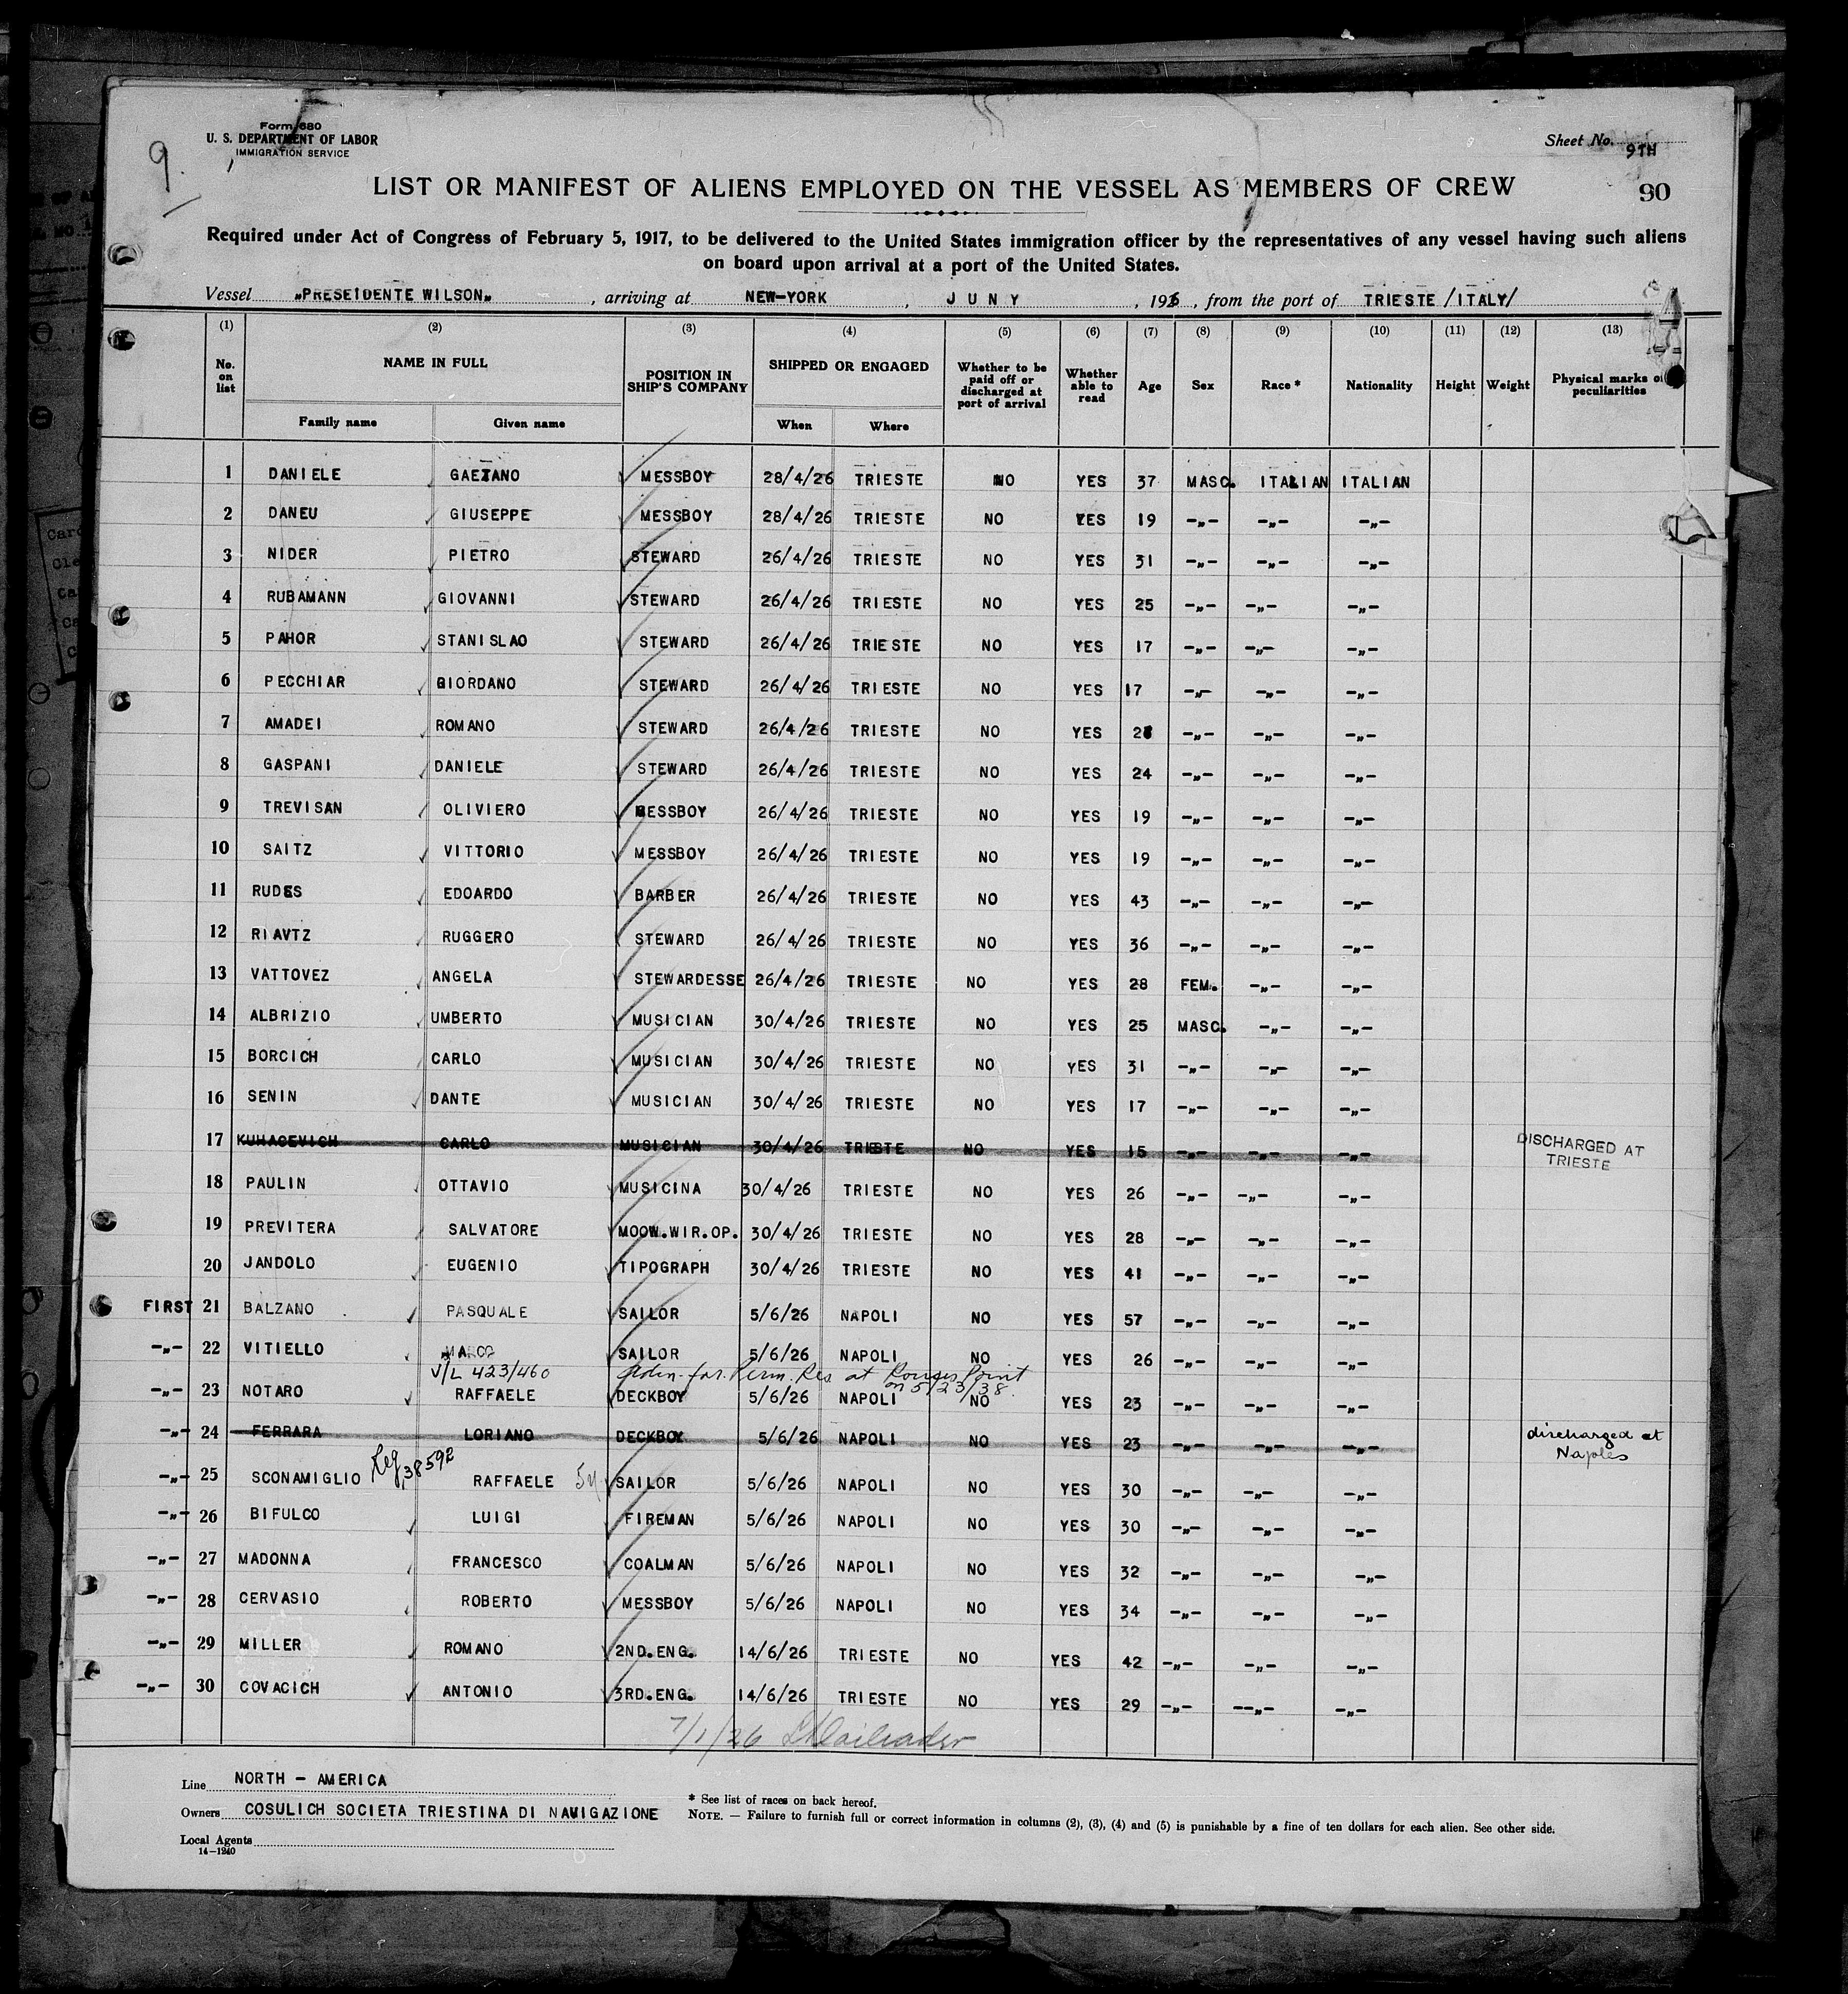 Form 680
U. S. DEPARTMENT OF LABOR
IMMIGRATION SERVICE
9.
Sheet No. 9TH
LIST OR MANIFEST OF ALIENS EMPLOYED ON THE VESSEL AS MEMBERS OF CREW
90
Required under Act of Congress of February 5, 1917, to be delivered to the United States immigration officer by the representatives of any vessel having such aliens
on board upon arrival at a port of the United States.
Vessel „PRESEIDENTE WILSON„ , arriving at NEW-YORK , JUNY , 1926 , from the port of TRIESTE /ITALY/
(1) (2) (3) (4) (5) (6) (7) (8) (9) (10) (11) (12) (13)
No. on list NAME IN FULL POSITION IN SHIP'S COMPANY SHIPPED OR ENGAGED Whether to be paid off or discharged at port of arrival Whether able to read Age Sex Race * Nationality Height Weight Physical marks or peculiarities
Family name Given name When Where
1 DANIELE GAETANO MESSBOY 28/4/26 TRIESTE NO YES 37 MASC. ITALIAN ITALIAN
2 DANEU GIUSEPPE MESSBOY 28/4/26 TRIESTE NO YES 19 -„- -„- -„-
3 NIDER PIETRO STEWARD 26/4/26 TRIESTE NO YES 31 -„- -„- -„-
4 RUBAMANN GIOVANNI STEWARD 26/4/26 TRIESTE NO YES 25 -„- -„- -„-
5 PAHOR STANISLAO STEWARD 26/4/26 TRIESTE NO YES 17 -„- -„- -„-
6 PECCHIAR GIORDANO STEWARD 26/4/26 TRIESTE NO YES 17 -„- -„- -„-
7 AMADEI ROMANO STEWARD 26/4/26 TRIESTE NO YES -„- -„- -„-
8 GASPANI DANIELE STEWARD 26/4/26 TRIESTE NO YES 24 -„- -„- -„-
9 TREVISAN OLIVIERO MESSBOY 26/4/26 TRIESTE NO YES 19 -„- -„- -„-
10 SAITZ VITTORIO MESSBOY 26/4/26 TRIESTE NO YES 19 -„- -„- -„-
11 RUDES EDOARDO BARBER 26/4/26 TRIESTE NO YES 43 -„- -„- -„-
12 RIAVTZ RUGGERO STEWARD 26/4/26 TRIESTE NO YES 36 -„- -„- -„-
13 VATTOVEZ ANGELA STEWARDESSE 26/4/26 TRIESTE NO YES 28 FEM. -„- -„-
14 ALBRIZIO UMBERTO MUSICIAN 30/4/26 TRIESTE NO YES 25 MASC. -„- -„-
15 BORCICH CARLO MUSICIAN 30/4/26 TRIESTE NO YES 31 -„- -„- -„-
16 SENIN DANTE MUSICIAN 30/4/26 TRIESTE NO YES 17 -„- -„- -„-
17 KUHACEVICH CARLO MUSICIAN 30/4/26 TRIESTE NO YES 15 -„- -„- -„- DISCHARGED AT TRIESTE
18 PAULIN OTTAVIO MUSICINA 30/4/26 TRIESTE NO YES 26 -„- -„- -„-
19 PREVITERA SALVATORE MOOW.WIR.OP. 30/4/26 TRIESTE NO YES 28 -„- -„- -„-
20 JANDOLO EUGENIO TIPOGRAPH 30/4/26 TRIESTE NO YES 41 -„- -„- -„-
FIRST 21 BALZANO PASQUALE SAILOR 5/6/26 NAPOLI NO YES 57 -„- -„- -„-
-„- 22 VITIELLO MARCO SAILOR 5/6/26 NAPOLI NO YES 26 -„- -„- -„-
V/L 423/460 Adm. for Perm. Res at Rouses Point on 5/23/38.
-„- 23 NOTARO RAFFAELE DECKBOY 5/6/26 NAPOLI NO YES 23 -„- -„- -„-
-„- 24 FERRARA LORIANO DECKBOY 5/6/26 NAPOLI NO YES 23 -„- -„- -„- discharged at Naples
-„- 25 SCONAMIGLIO Reg 38592 RAFFAELE SAILOR 5/6/26 NAPOLI NO YES 30 -„- -„- -„-
-„- 26 BIFULCO LUIGI FIREMAN 5/6/26 NAPOLI NO YES 30 -„- -„- -„-
-„- 27 MADONNA FRANCESCO COALMAN 5/6/26 NAPOLI NO YES 32 -„- -„- -„-
-„- 28 CERVASIO ROBERTO MESSBOY 5/6/26 NAPOLI NO YES 34 -„- -„- -„-
-„- 29 MILLER ROMANO 2ND.ENG. 14/6/26 TRIESTE NO YES 42 -„- -„- -„-
-„- 30 COVACICH ANTONIO 3RD.ENG. 14/6/26 TRIESTE NO YES 29 -„- --„- -„-
7/1/26
Line NORTH - AMERICA
Owners COSULICH SOCIETA TRIESTINA DI NAVIGAZIONE
Local Agents
14-1240
* See list of races on back hereof.
NOTE. — Failure to furnish full or correct information in columns (2), (3), (4) and (5) is punishable by a fine of ten dollars for each alien. See other side.